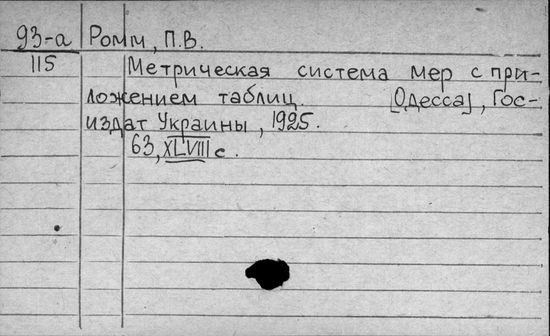 93-а Ромм, П.В.
115 Метрическая система мер с при-
ложением таблиц. [Одесса], Гос-
издат Украины, 1925.
63, XLVIII с.